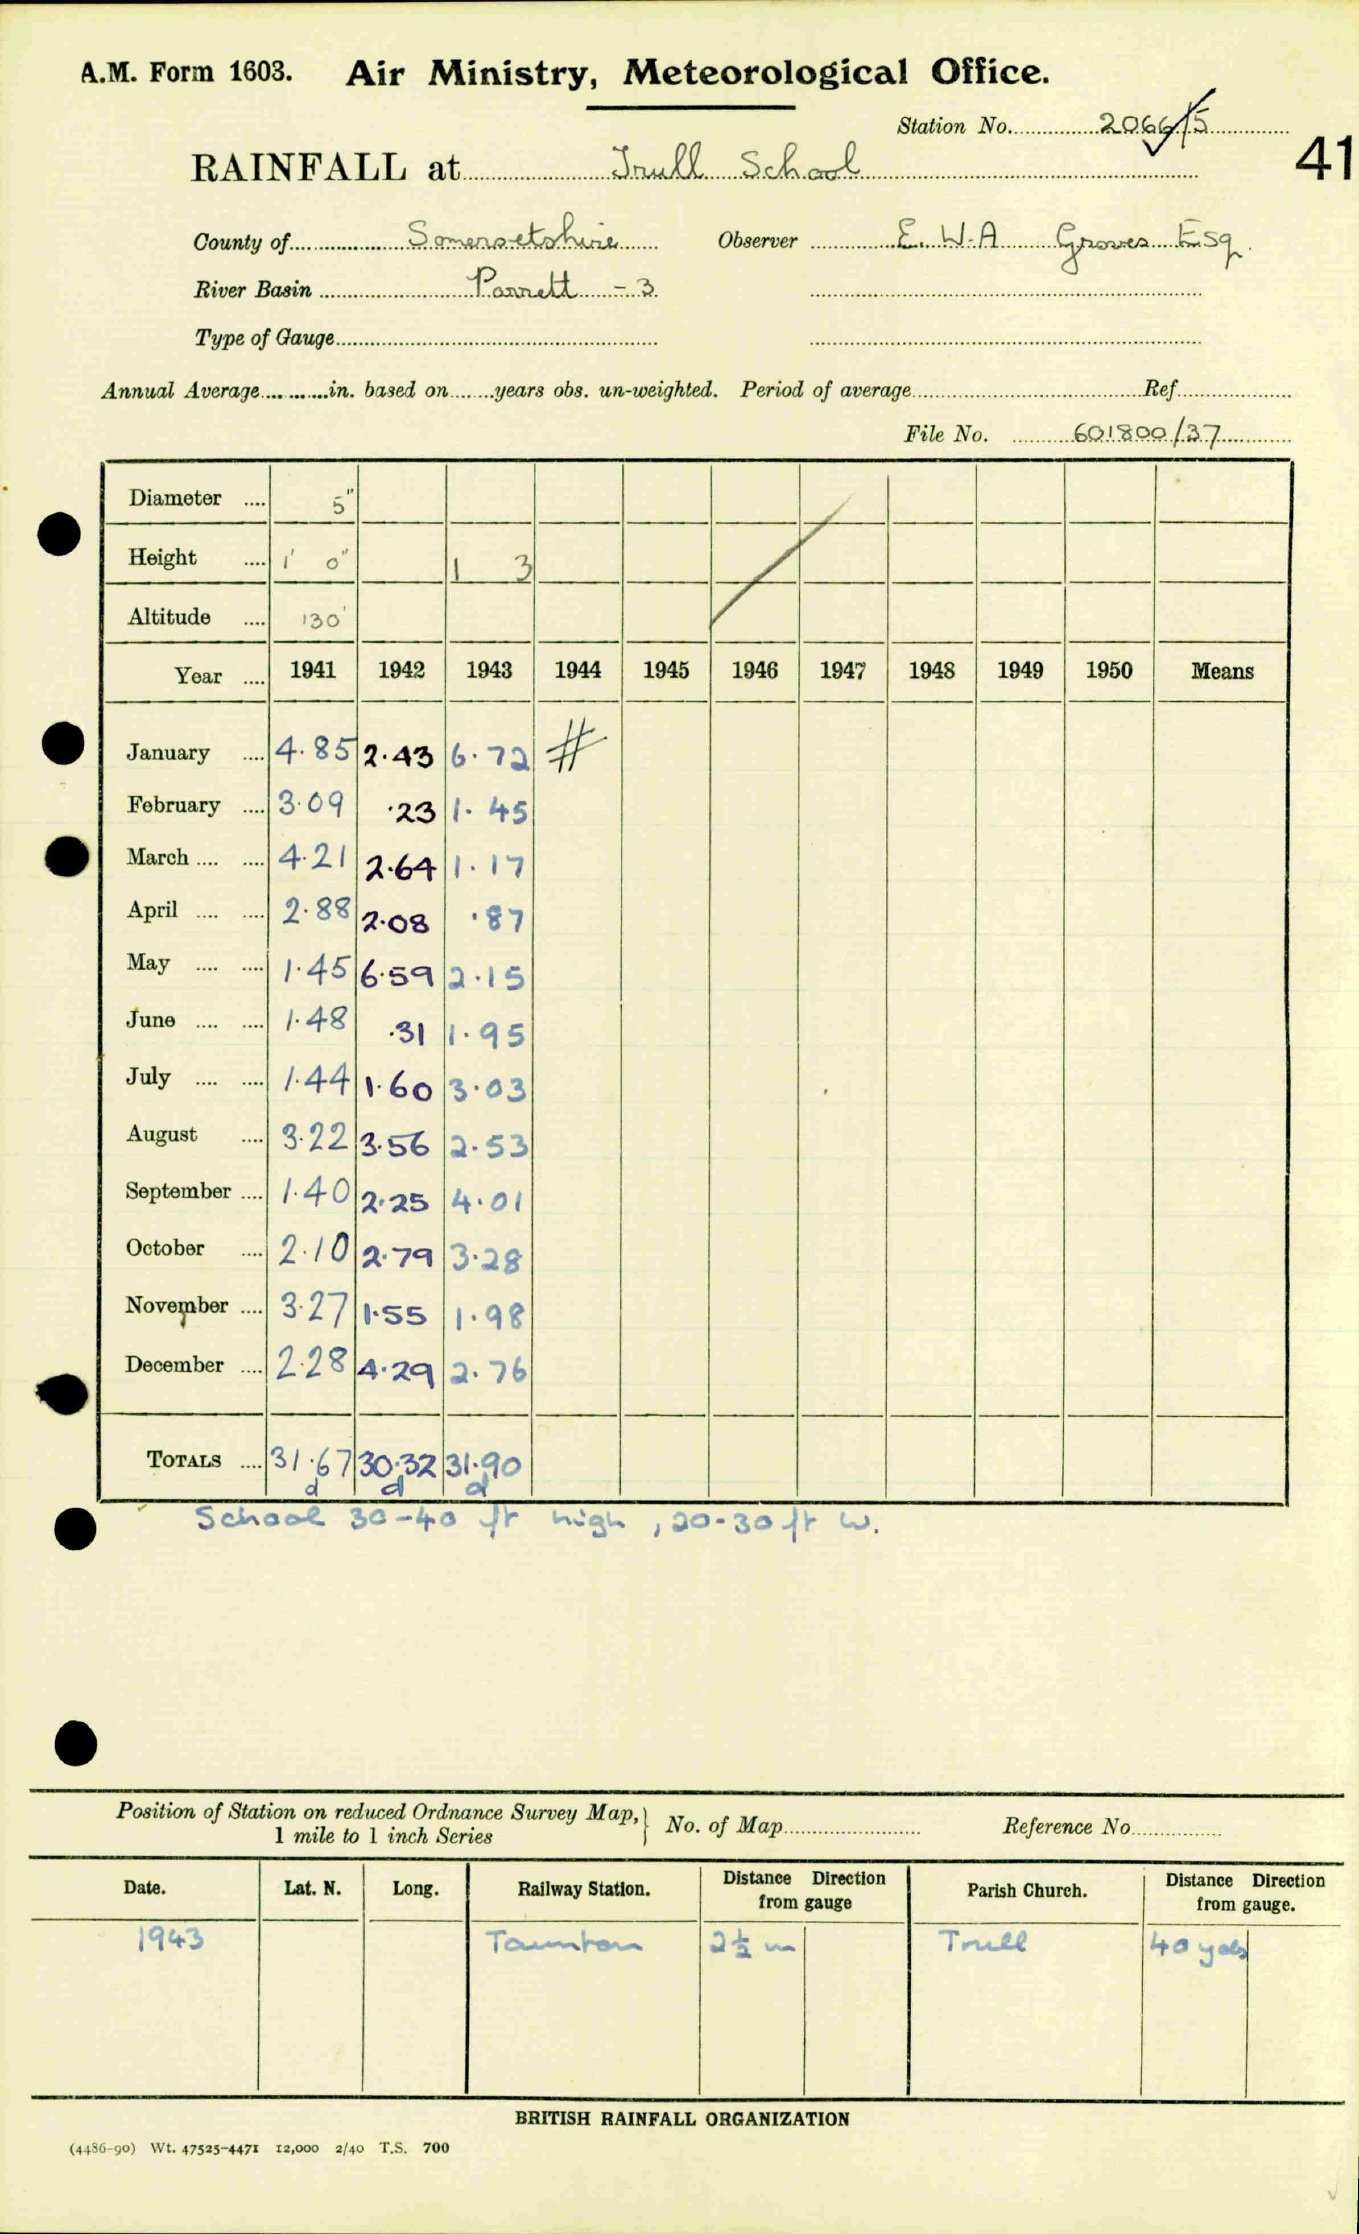 A.M. Form 1603. Air Ministry, Meteorological Office.
Station No. 2066/5
41
RAINFALL at Trull School
County of Somersetshire Observer E. W. A Groves Esq.
River Basin Parrett - 3
Type of Gauge
Annual Average in. based on years obs. un-weighted. Period of average Ref
File No. 601800/37
Diameter 5"
Height 1' 0" 1 3
Altitude 130'
Year 1941 1942 1943 1944 1945 1946 1947 1948 1949 1950 Means
January 4.85 2.43 6.72 #
February 3.09 .23 1.45
March 4.21 2.64 1.17
April 2.88 2.08 .87
May 1.45 6.59 2.15
June 1.48 .31 1.95
July 1.44 1.60 3.03
August 3.22 3.56 2.53
September 1.40 2.25 4.01
October 2.10 2.79 3.28
November 3.27 1.55 1.98
December 2.28 4.29 2.76
TOTALS 31.67 30.32 31.90
d d d
School 30-40 ft high, 20-30 ft W.
Position of Station on reduced Ordnance Survey Map, No. of Map Reference No
1 mile to 1 inch Series
Date. Lat. N. Long. Railway Station. Distance Direction from gauge Parish Church. Distance Direction from gauge.
1943 Taunton 2½ m Trull 40 yds
BRITISH RAINFALL ORGANIZATION
(4486-90) Wt. 47525-4471 12,000 2/40 T.S. 700